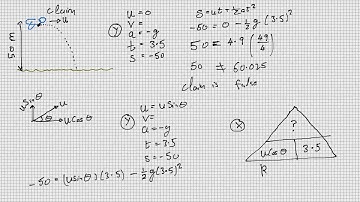 claim
u
50 m
(Y)
u = 0
v =
a = -g
t = 3.5
s = -50
s = ut + ½at²
-50 = 0 - ½g(3.5)²
50 = 4.9 (49/4)
50 ≠ 60.025
claim is false
uSinθ
u
θ
uCosθ
(Y)
u = uSinθ
v =
a = -g
t = 3.5
s = -50
-50 = (uSinθ)(3.5) - ½g(3.5)²
(X)
?
uCosθ
3.5